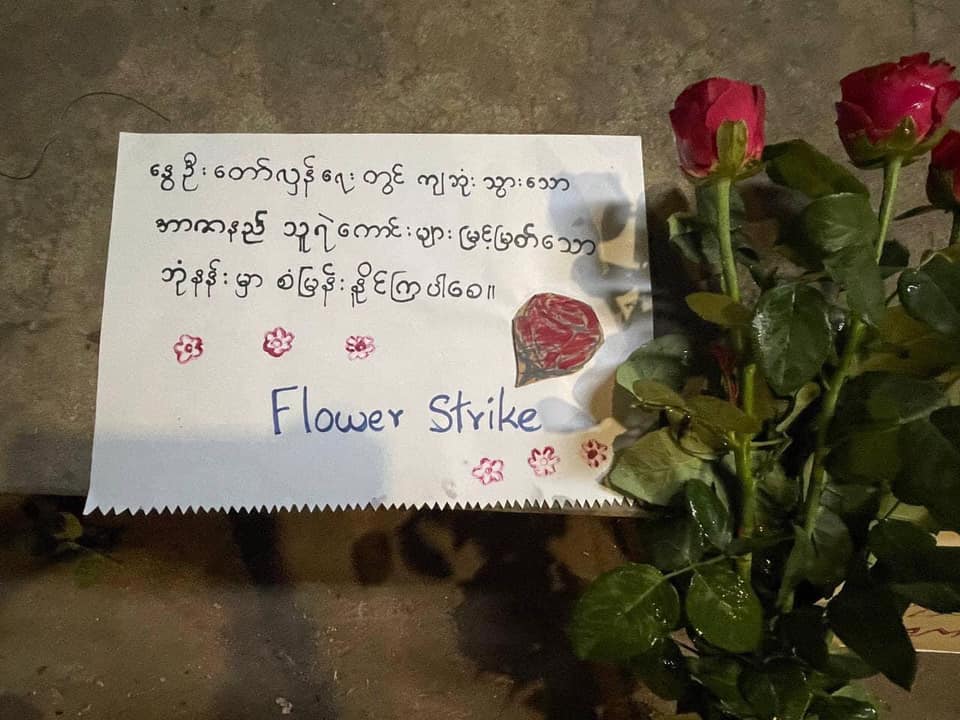 နွေဦးတော်လှန်ရေးတွင် ကျဆုံးသွားသော
အာဇာနည် သူရဲကောင်းများ မြင့်မြတ်သော
ဘုံနန်းမှာ စံမြန်းနိုင်ကြပါစေ။
Flower Strike